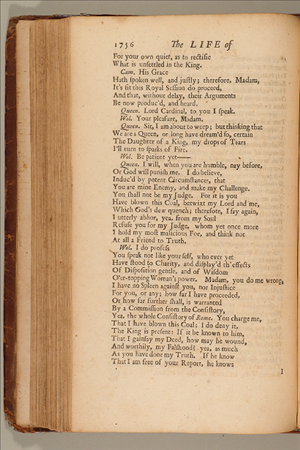 1756 The LIFE of
For your own quiet, as to rectifie
What is unsettled in the King.
Cam. His Grace
Hath spoken well, and justly; therefore, Madam,
It's fit this Royal Session do proceed,
And that, without delay, their Arguments
Be now produc'd, and heard.
Queen. Lord Cardinal, to you I speak.
Wol. Your pleasure, Madam.
Queen. Sir, I am about to weep; but thinking that
We are a Queen, or long have dream'd so, certain
The Daughter of a King, my drops of Tears
I'll turn to sparks of Fire.
Wol. Be patient yet——
Queen. I will, when you are humble, nay before,
Or God will punish me. I do believe,
Induc'd by potent Circumstances, that
You are mine Enemy, and make my Challenge.
You shall not be my Judge. For it is you
Have blown this Coal, betwixt my Lord and me,
Which God's dew quench; therefore, I say again,
I utterly abhor, yea, from my Soul
Refuse you for my Judge, whom yet once more
I hold my most malicious Foe, and think not
At all a Friend to Truth.
Wol. I do profess
You speak not like your self, who ever yet
Have stood to Charity, and display'd th'effects
Of Disposition gentle, and of Wisdom
O'er-topping Woman's power. Madam, you do me wrong,
I have no Spleen against you, nor Injustice
For you, or any; how far I have proceeded,
Or how far further shall, is warranted
By a Commission from the Consistory,
Yea, the whole Consistory of Rome. You charge me,
That I have blown this Coal; I do deny it.
The King is present: If it be known to him,
That I gainsay my Deed, how may he wound,
And worthily, my Falshood? yea, as much
As you have done my Truth. If he know
That I am free of your Report, he knows
I